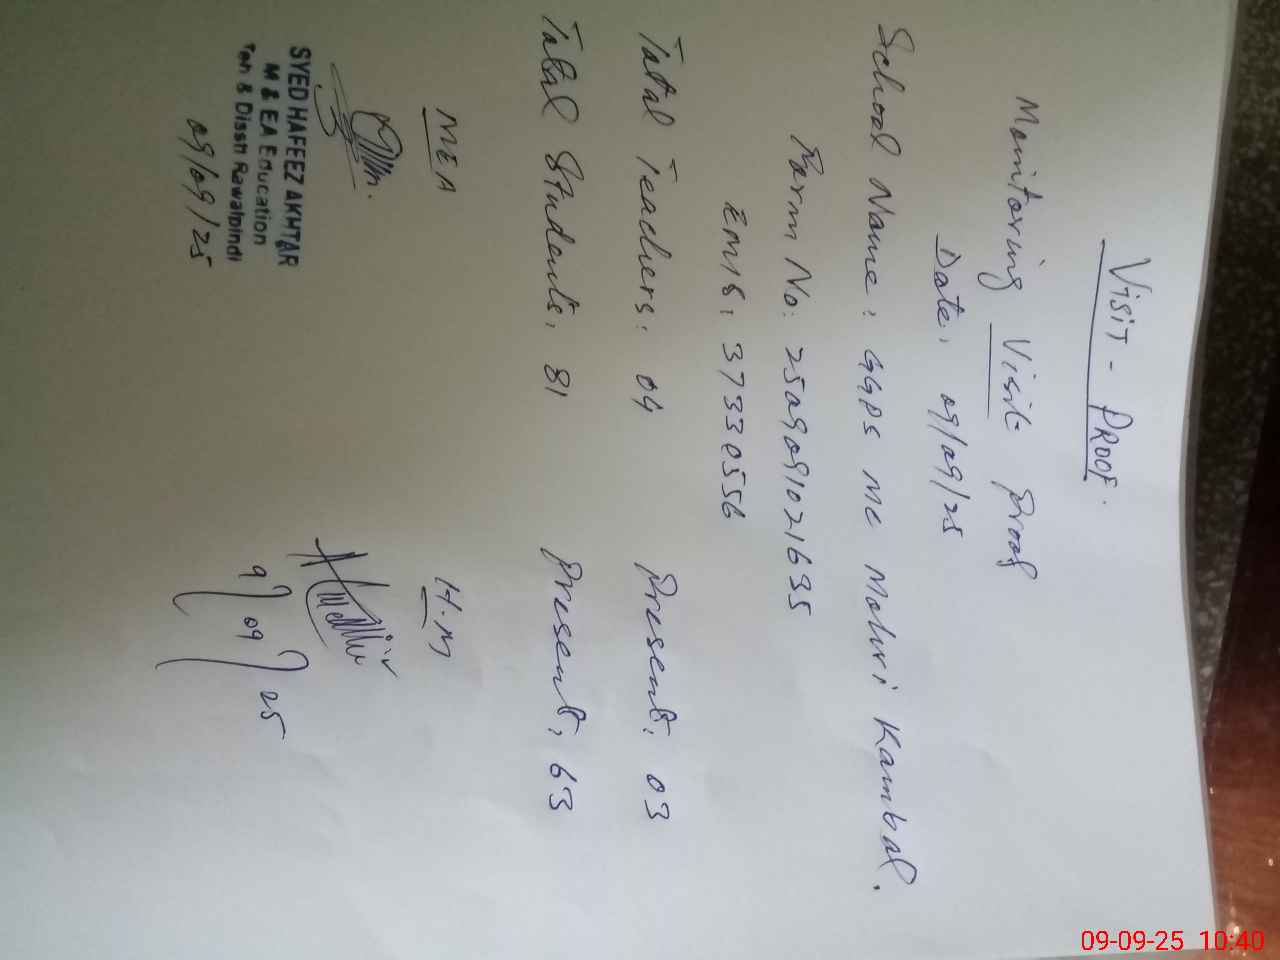 VISIT - PROOF.
Monitoring Visit Proof
Date: 09/09/25
School Name: GGPS MC Mohri Kambal.
Form No: 2509091021635
EMIS: 37330556
Total Teachers: 04 Present: 03
Total Students: 81 Present: 63
MEA H.M
SYED HAFEEZ AKHTAR
M & EA Education
Teh & Disstt Rawalpindi
09/09/25
9/09/25
09-09-25 10:40